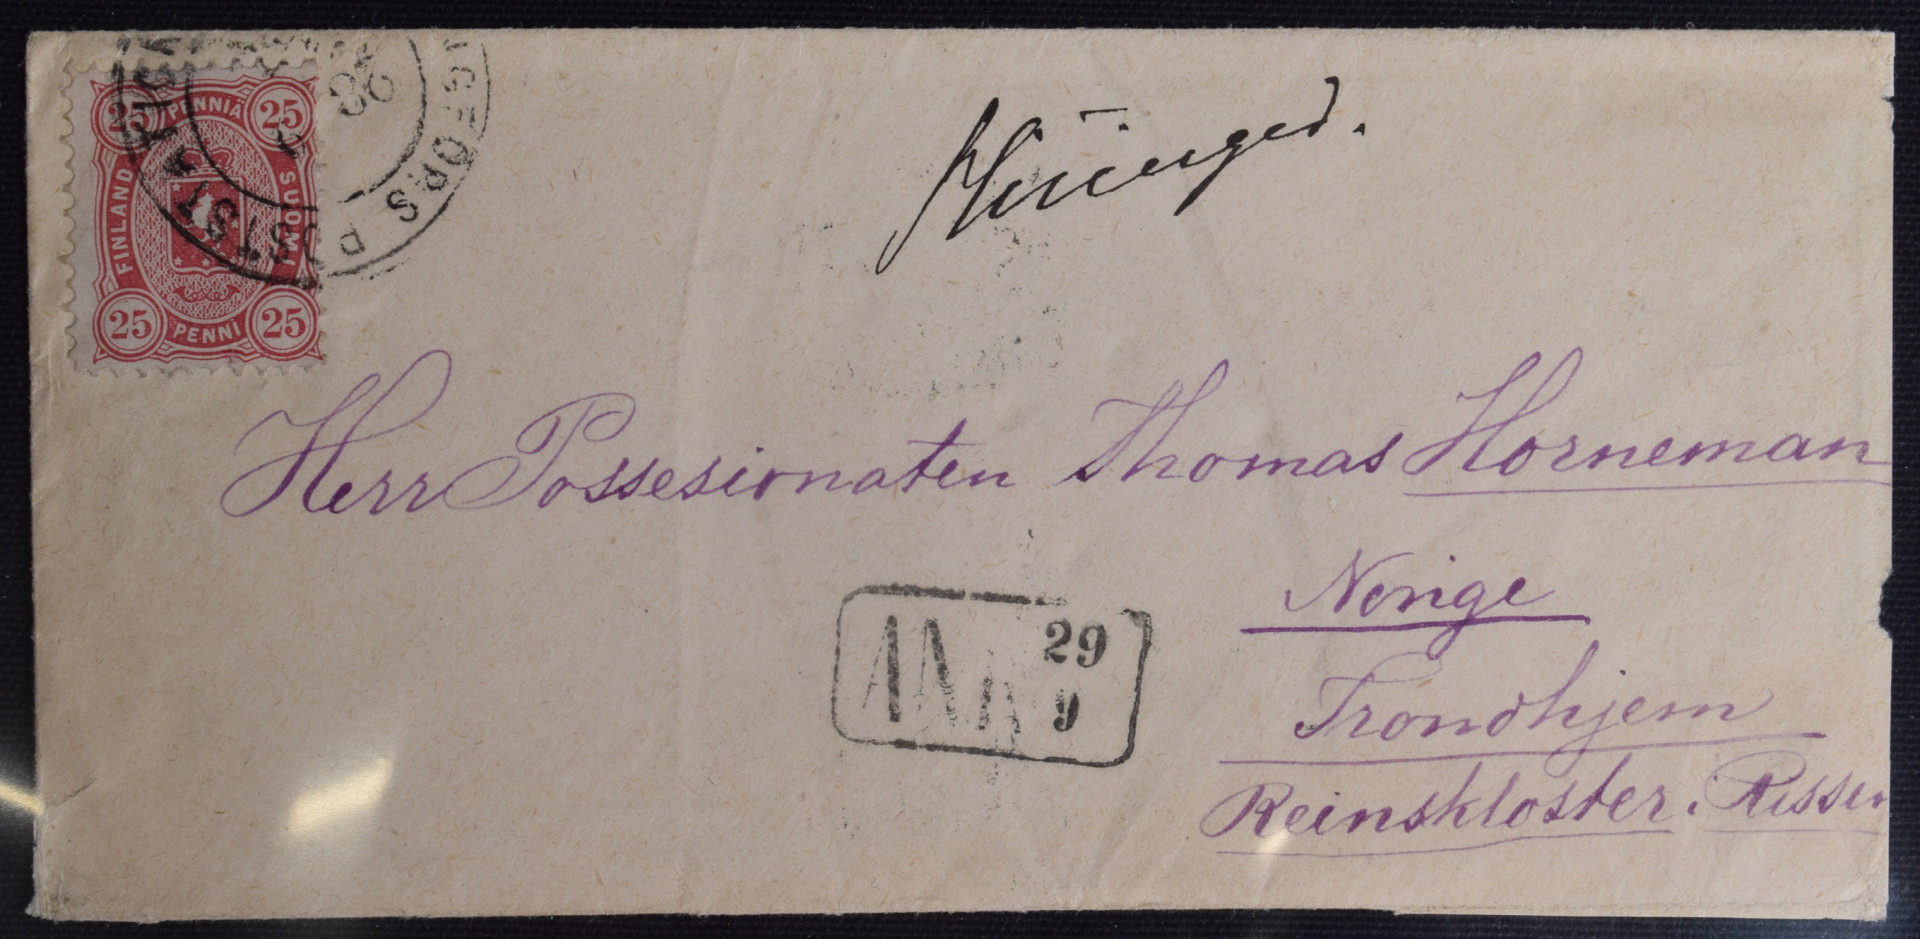 25 PENNIÄ 25
FINLAND SUOMI
25 PENNI 25
GFORS POST
Herr Possesionaten Thomas Horneman
ANK 29
9
Norige
Trondhjem
Reinskloster. Rissen